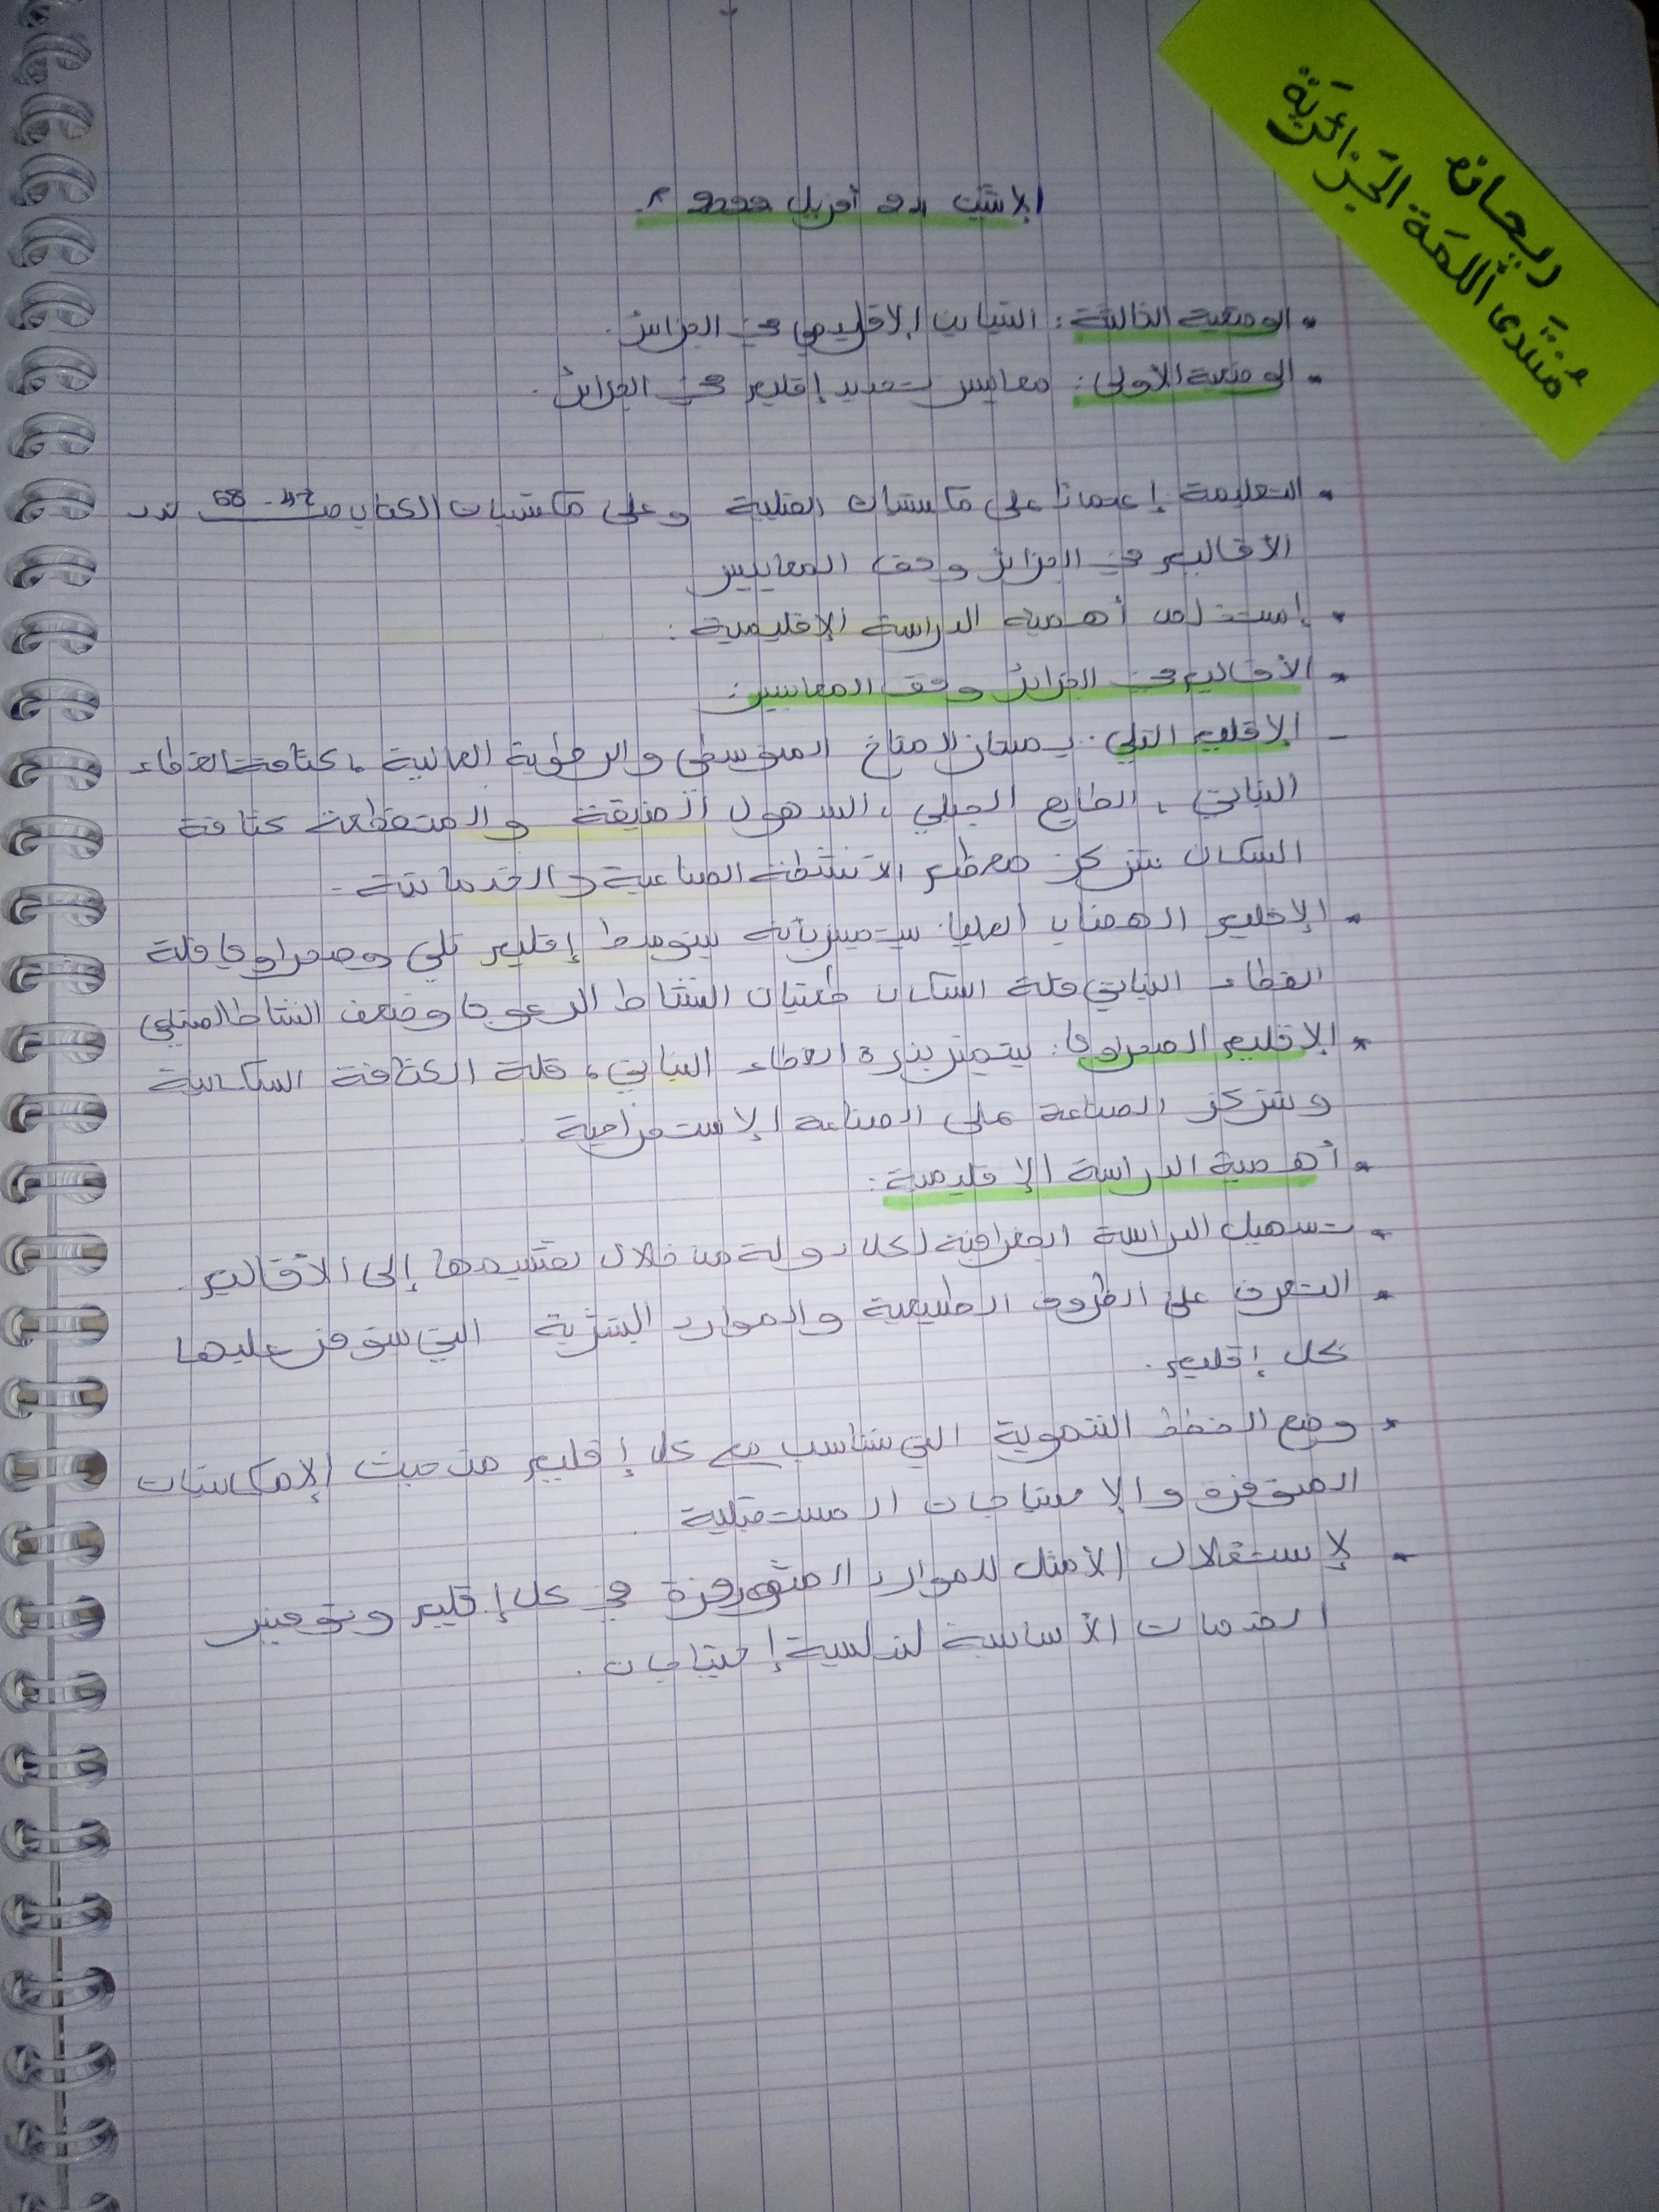 ريحانة
مُنتَدى اللمَة الجَزائريَة
الاثنين أفريل 2022 م
• الوضعية الثالثة: التباين الاقليمي في الجزائر.
• الوضعية الأولى: معايير تحديد إقليم في الجزائر.
• التعليمة إعتمادا على مكتسباتك القبلية وعلى مكتسبات الكتاب ص 68 حدد
الأقاليم في الجزائر وفق المعايير
• إستخلص أهمية الدراسة الإقليمية:
* الأقاليم في الجزائر وفق المعايير:
- الإقليم التلي: يمتاز المناخ المتوسطي والرطوبة العالية، كثافة الغطاء
النباتي، الطابع الجبلي، السهول الضيقة والمتقطعة كثافة
السكان تتركز معظم الأنشطة الصناعية والخدماتية -
* الإقليم الهضاب العليا: يتميز بأنه يتوسط إقليم تلي وصحراوي قلة
الغطاء النباتي قلة السكان النشاط الرعوي وضعف النشاط
* الإقليم الصحراوي: يتميز بندرة الغطاء النباتي، قلة الكثافة السكانية
وتتركز الصناعة على الصناعة الإستخراجية.
* أهمية الدراسة الإقليمية:
* تسهيل الدراسة الجغرافية لكل دولة من خلال تقسيمها إلى الأقاليم.
* التعرف على الظروف الطبيعية والموارد البشرية التي يتوفر عليها
كل إقليم.
* وضع الخطط التنموية التي تتناسب مع كل إقليم من حيث الإمكانيات
المتوفرة والإحتياجات المستقبلية.
* لإستغلال الأمثل للموارد المتوفرة في كل إقليم وتوفير
الخدمات الأساسية لتلبية إحتياجات.